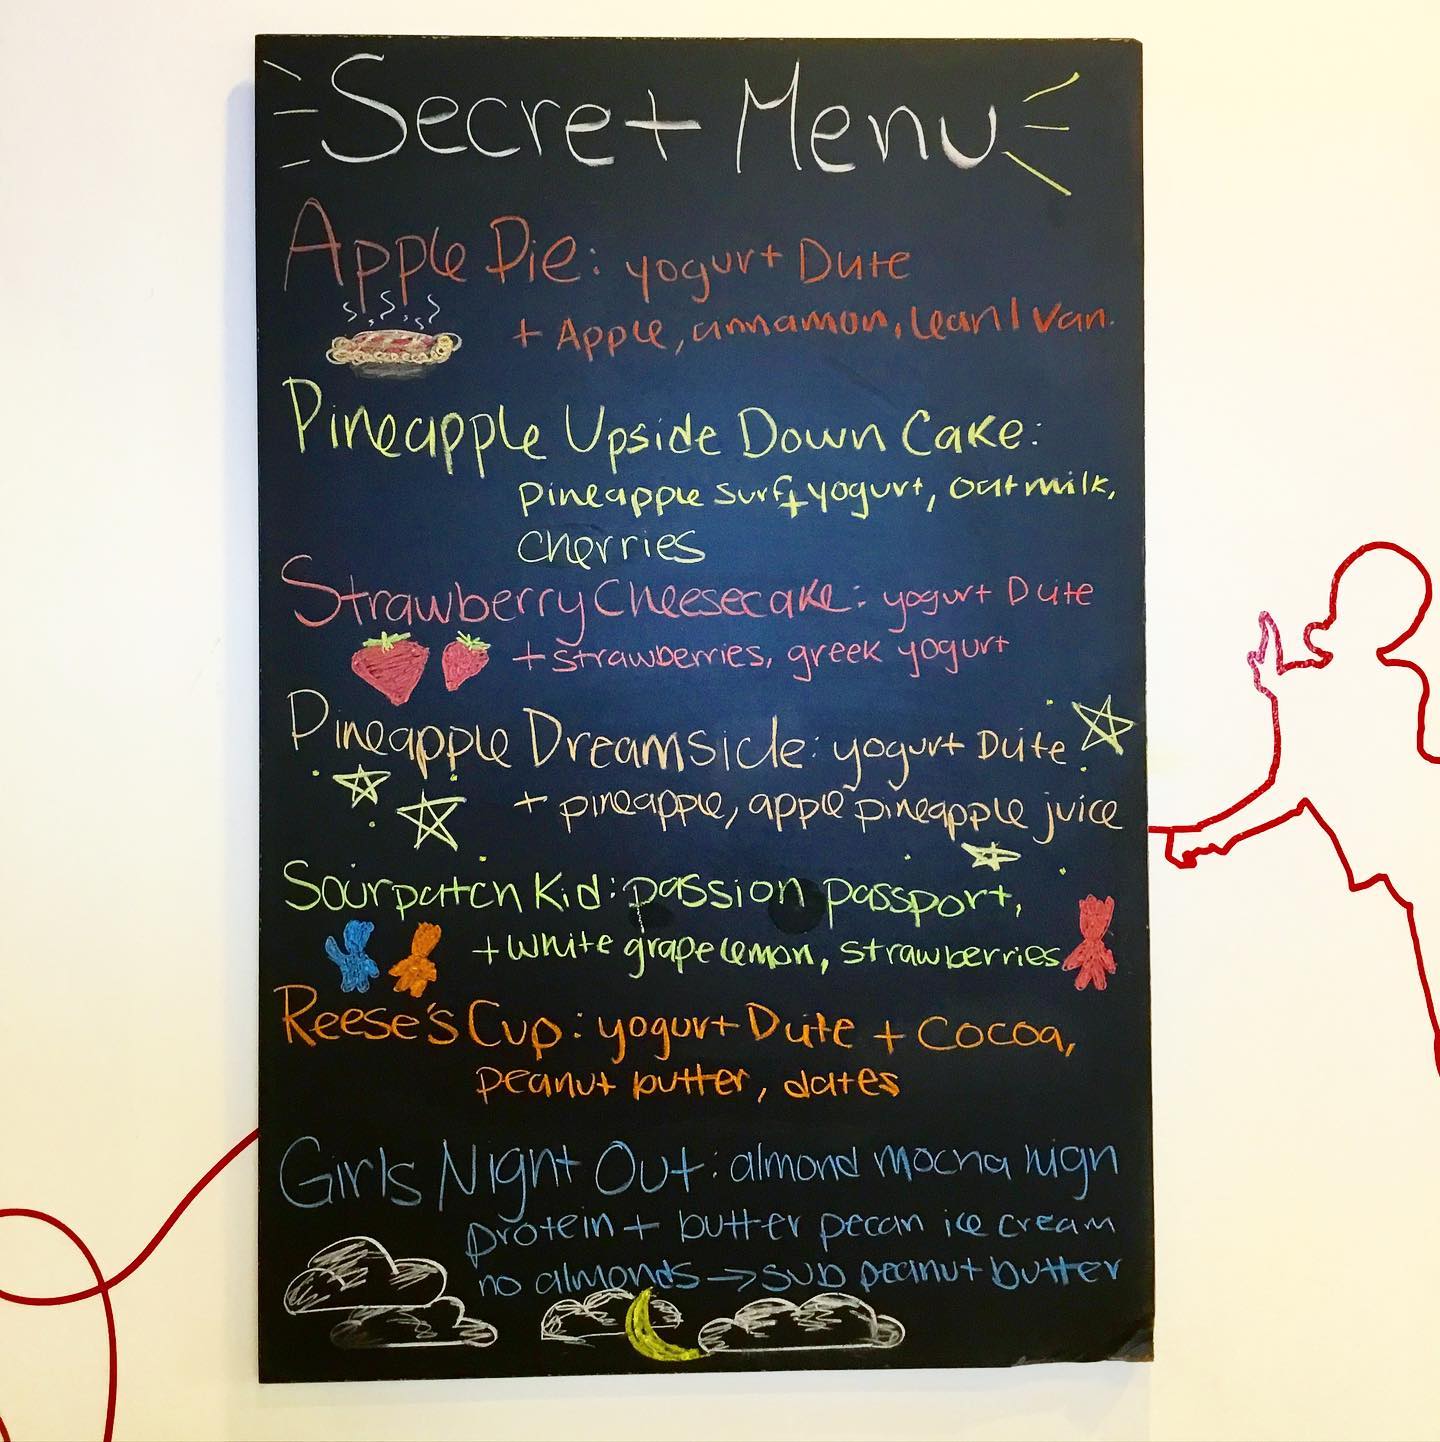 Secret Menu
Apple Pie: yogurt Dute
+ Apple, cinnamon, lean1 Van.
Pineapple Upside Down Cake:
pineapple surf + yogurt, oatmilk,
cherries
Strawberry Cheesecake: yogurt Dute
+ strawberries, greek yogurt
Pineapple Dreamsicle: yogurt Dute
+ pineapple, apple pineapple juice
Sourpatch Kid: passion passport,
+ white grape lemon, strawberries
Reese's Cup: yogurt Dute + Cocoa,
peanut butter, dates
Girls Night Out: almond mocha high
protein + butter pecan ice cream
no almonds → sub peanut butter